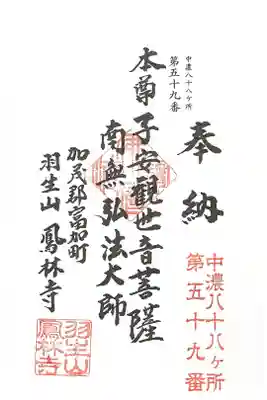 奉納
中濃八十八ヶ所
第五十九番
本尊子安觀世音菩薩
南無弘法大師
加茂郡富加町
羽生山鳳林寺
中濃八十八ヶ所
第五十九番
羽生山
鳳林寺